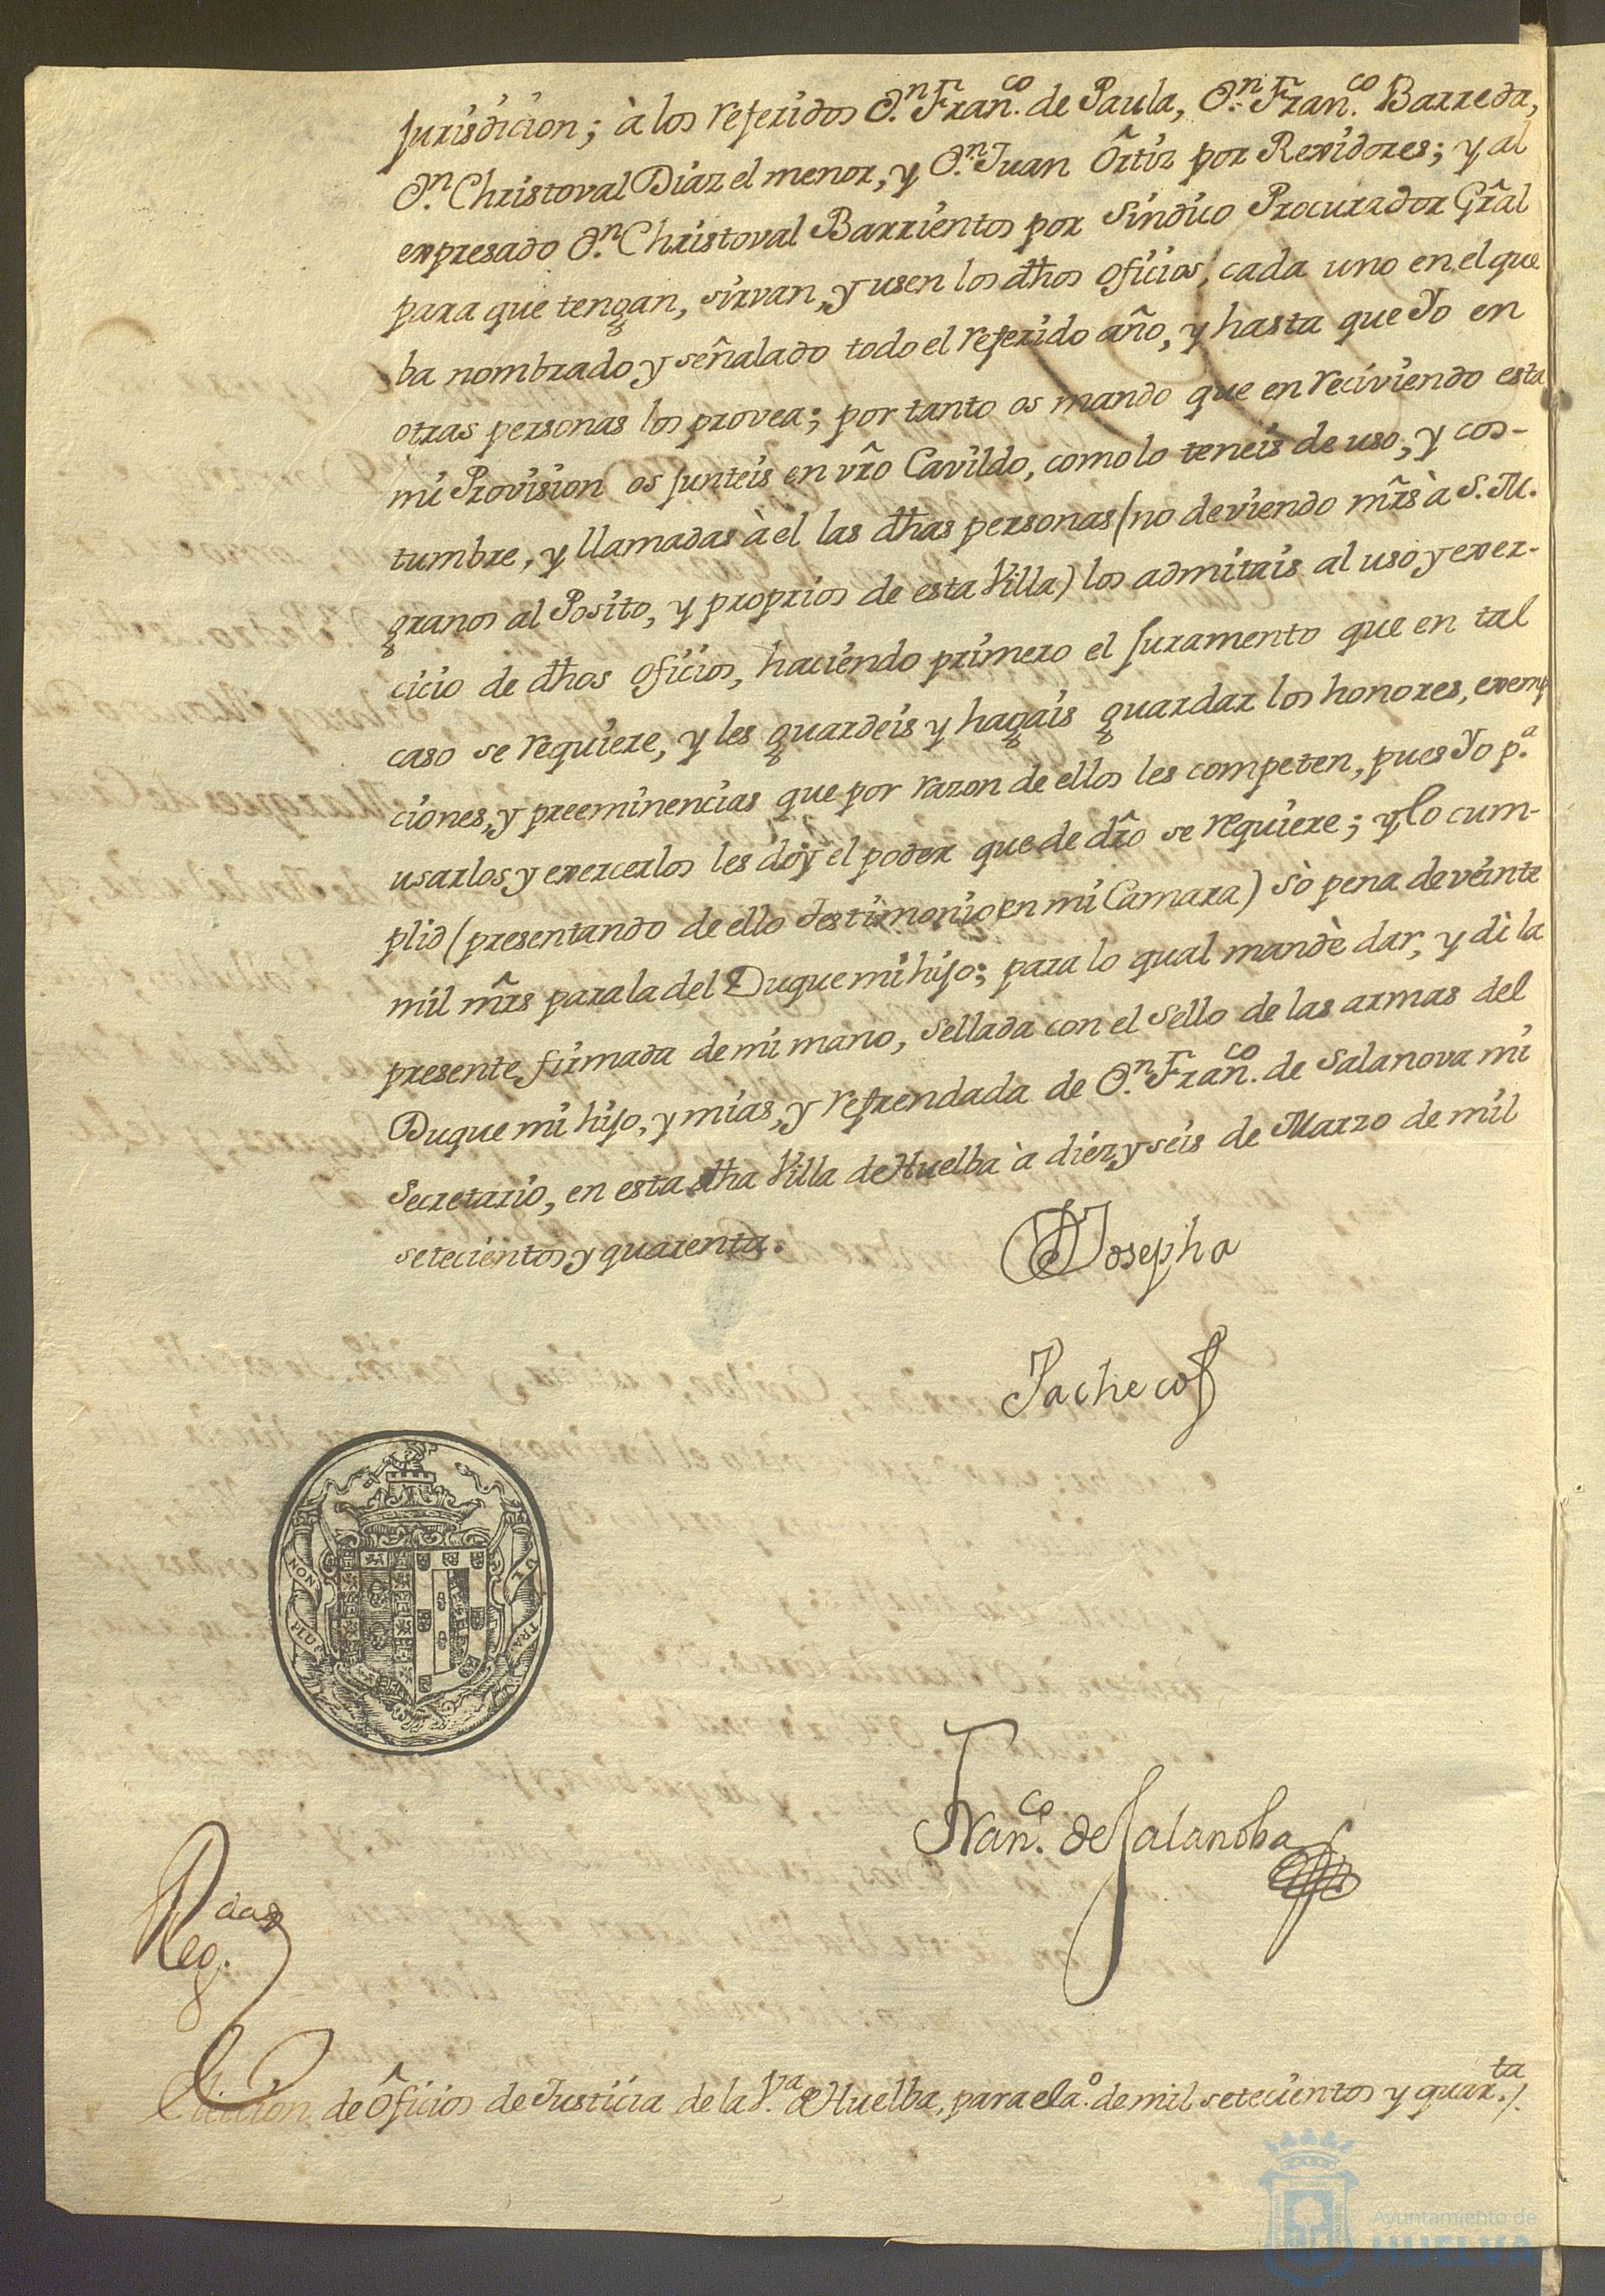 Jurisdicion; à los referidos D.n Fran.co de Paula, D.n Fran.co Barreda,
D.n Christoval Diaz el menor, y D.n Juan Ortiz por Rexidores; y al
expresado D.n Christoval Barrientos por Sindico Procurador Grãl
para que tengan, sirvan, y usen los dhos oficios, cada uno en el que
ba nombrado y señalado todo el referido año, y hasta que Yo en
otras personas los provea; por tanto os mando que en reciviendo esta
mi Provision os junteis en vrõ Cavildo, como lo teneis de uso, y cos-
tumbre, y llamadas à el las dhas personas (no deviendo mr̃s à S. M.
granos al Posito, y proprios de esta Villa) los admitais al uso y exer-
cicio de dhos oficios, haciendo primero el Juramento que en tal
caso se requiere, y les guardeis y hagais guardar los honores, exemp
ciones, y preeminencias que por razon de ellos les competen, pues Yo p.a
usarlos y exercerlos les doy el poder que de drõ se requiere; y lo cum-
plid (presentando de ello Testimonio en mi Camara) sò pena de veinte
mil mr̃s para la del Duque mi hijo; para lo qual mandè dar, y dì la
presente firmada de mi mano, sellada con el sello de las armas del
Duque mi hijo, y mias, y refrendada de D.n Fran.co de Salanova mi
Secretario, en esta dha Villa de Huelba à diez y seis de Marzo de mil
setecientos y quarenta.
Josepha
Pacheco
NON PLUS ULTRA
Fran.co de Salanoba
Reg.daa
Eleccion de Oficios de Justicia de la V.a de Huelba, para el a.o de mil setecientos y quar.ta
Ayuntamiento de
HUELVA